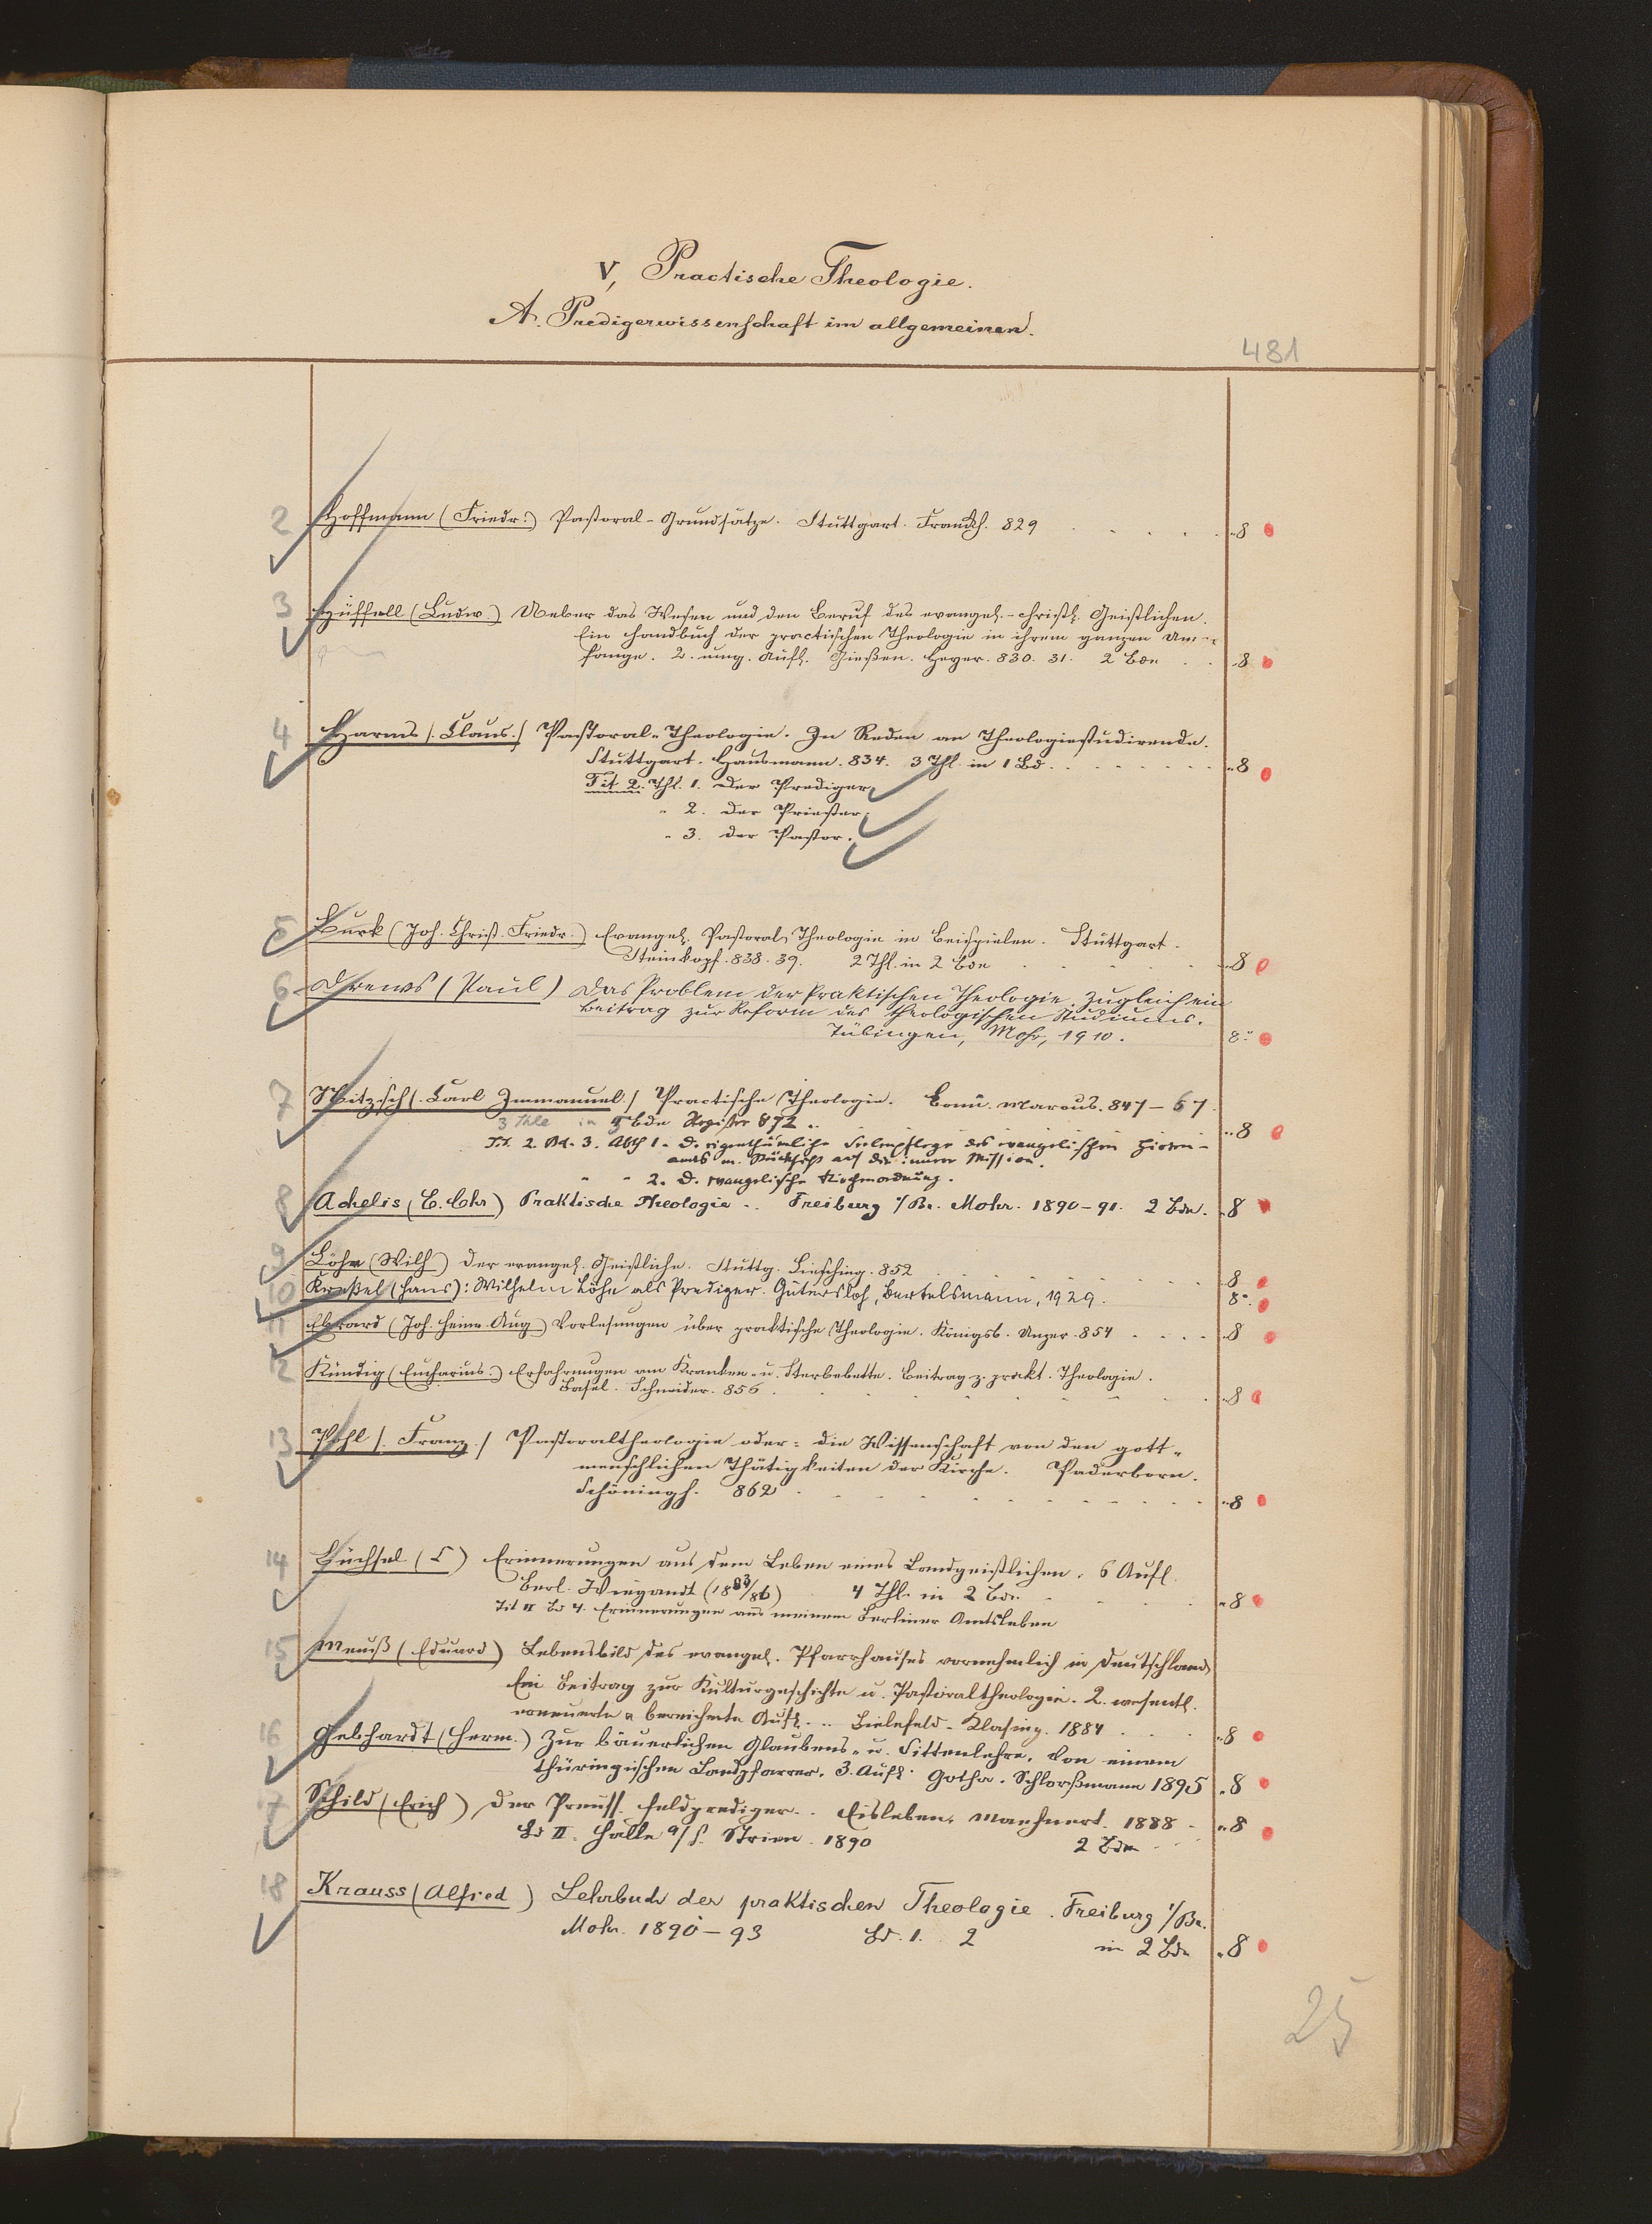 V, Practische Theologie.
A. Predigerwissenschaft im allgemeinen.
481
2 Hoffmann (Friedr.) Pastoral-Grundsätze. Stuttgart. Franckh. 829 . . . . 8
3 Hüffell (Ludw.) Ueber das Wesen und den Beruf des evangel.-christl. Geistlichen.
Ein Handbuch der practischen Theologie in ihrem ganzen Um-
fange. 2. umg. Aufl. Gießen. Heyer. 830. 31. 2 Bde . . 8
4 Harms (Claus.) Pastoral-Theologie. In Reden an Theologiestudirende.
Stuttgart. Hausmann. 834. 3 Thl. in 1 Bd. . . . . . . . 8
Tit. 2. Thl. 1. Der Prediger.
" 2. Der Priester.
" 3. Der Pastor.
5 Burk (Joh. Christ. Friedr.) Evangel. Pastoral-Theologie in Beispielen. Stuttgart.
Steinkopf. 838. 39. 2 Thl. in 2 Bde . . . . . 8
6 Drews (Paul) Das Problem der Praktischen Theologie. Zugleich ein
Beitrag zur Reform des theologischen Studiums.
Tübingen, Mohr, 1910. 8°
7 Nitzsch (Carl Immanuel.) Practische Theologie. Bonn. Marcus. 847-67.
3 Thle in 5 Bde Register 872 .. 8
Tit. 2. Bd. 3. Abth 1. D. eigenthümliche Seelenpflege des evangelischen Hirten-
amts m. Rücksicht auf die innere Mission.
" " 2. D. evangelische Kirchenordnung.
8 Achelis (E. Chr) Praktische Theologie .. Freiburg i/Br. Mohr. 1890-91. 2 Bde. 8
9 Löhe (Wilh) Der evangel. Geistliche. Stuttg. Liesching. 852 . . . . . 8
10 Kreßel (Hans): Wilhelm Löhe als Prediger. Gütersloh, Bertelsmann, 1929. 8°.
11 Ebrard (Joh. Heinr. Aug) Vorlesungen über praktische Theologie. Königsb. Unzer. 854 . . . . 8
12 Kündig (Eucharius.) Erfahrungen am Kranken- u. Sterbebette. Beitrag z. prakt. Theologie.
Basel. Schneider. 856. . . . . . . 8
13 Pohl (Franz.) Pastoraltheologie oder: die Wissenschaft von den gott-
menschlichen Thätigkeiten der Kirche. Paderborn.
Schöningh. 862 . . . . . . . . 8
14 Büchsel (C) Erinnerungen aus dem Leben eines Landgeistlichen. 6 Aufl.
Berl. Wiegandt (1883/86) 4 Thl. in 2 Bde. . . . . 8
Tit II Bd 4. Erinnerungen aus meinem Berliner Amtsleben
15 Meuß (Eduard) Lebensbild des evangel. Pfarrhauses vornehmlich in Deutschland
Ein Beitrag zur Kulturgeschichte u. Pastoraltheologie. 2. wesentl.
erneuerte u bereicherte Aufl. .. Bielefeld - Klasing. 1884 . . . 8
16 Gebhardt (Herm.) Zur bäuerlichen Glaubens- u. Sittenlehre. Von einem
thüringischen Landpfarrer. 3. Aufl. Gotha. Schloeßmann 1895 8
17 Schild (Erich) Der Preuss. Feldprediger .. Eisleben. Maehnert. 1888 . 8
Bd II. Halle a/S. Strien. 1890 2 Bde
18 Krauss (Alfred) Lehrbuch der praktischen Theologie. Freiburg i/Br.
Mohr. 1890-93 Bd. 1. 2 in 2 Bde 8
25